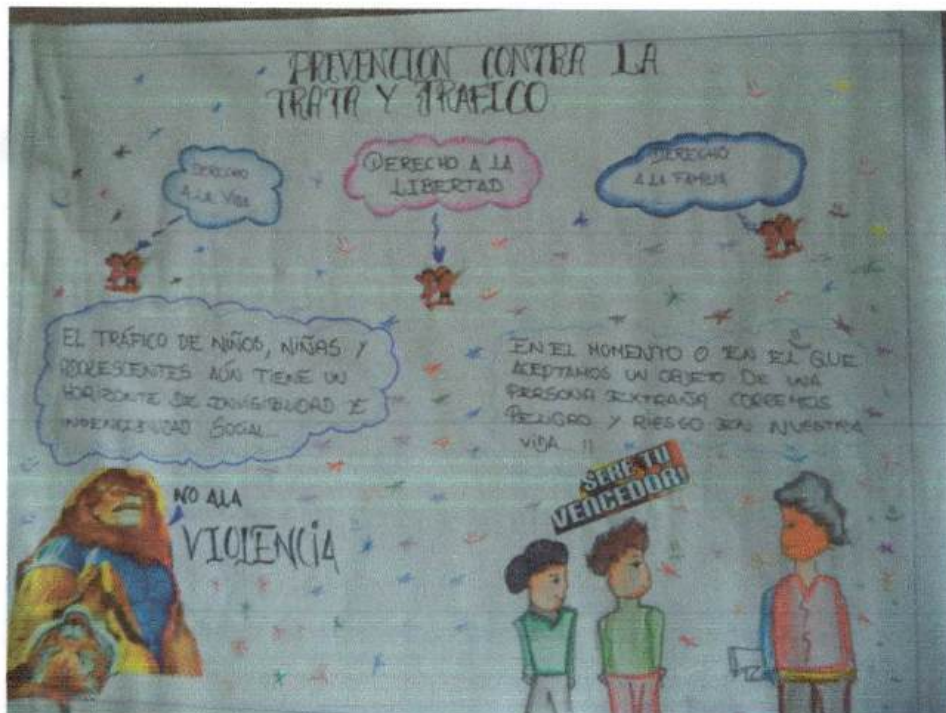 PREVENCION CONTRA LA
TRATA Y TRAFICO
DERECHO
A LA VIDA
DERECHO A LA
LIBERTAD
DERECHO
A LA FAMILIA
EL TRÁFICO DE NIÑOS, NIÑAS Y
ADOLESCENTES AÚN TIENE UN
HORIZONTE DE INVISIBILIDAD E
SOCIAL
EN EL MOMENTO O EN EL QUE
ACEPTAMOS UN OBJETO DE UNA
PERSONA EXTRAÑA CORREMOS
PELIGRO Y RIESGO EN NUESTRA
VIDA !!
NO A LA
VIOLENCIA
SERE TU
VENCEDOR!